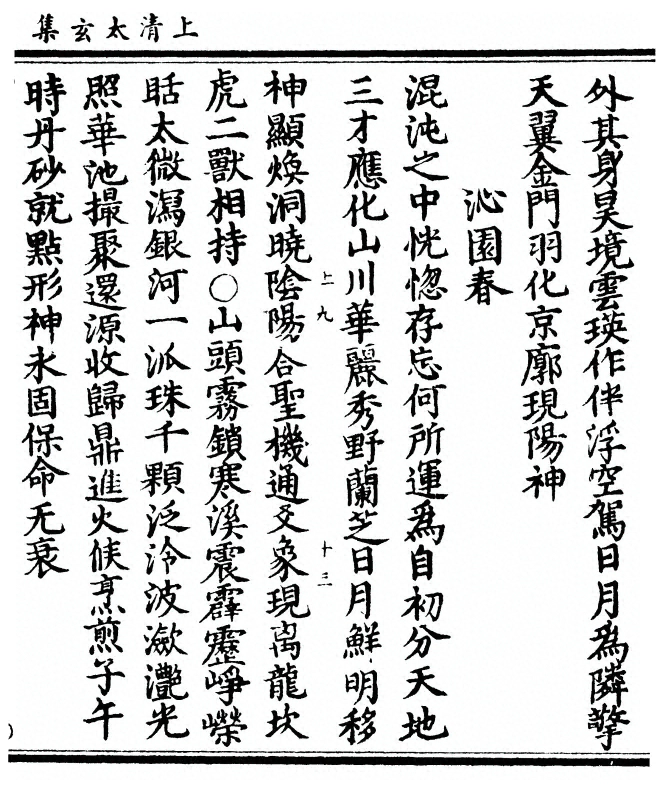 上清太玄集
外其身昊境雲瑛作伴浮空駕日月為隣擎
天翼金門羽化京廓現陽神
沁園春
混沌之中恍惚存忘何所運為自初分天地
三才應化山川華麗秀野蘭芝日月鮮明移
神顯煥洞曉陰陽合聖機通爻象現离龍坎
虎二獸相持○山頭霧鎖寒溪震霹靂崢嶸
聒太微瀉銀河一派珠千顆泛泠波瀲灔光
照華池撮聚還源收歸鼎進火候烹煎子午
時丹砂就點形神永固保命无衰
上九
十三